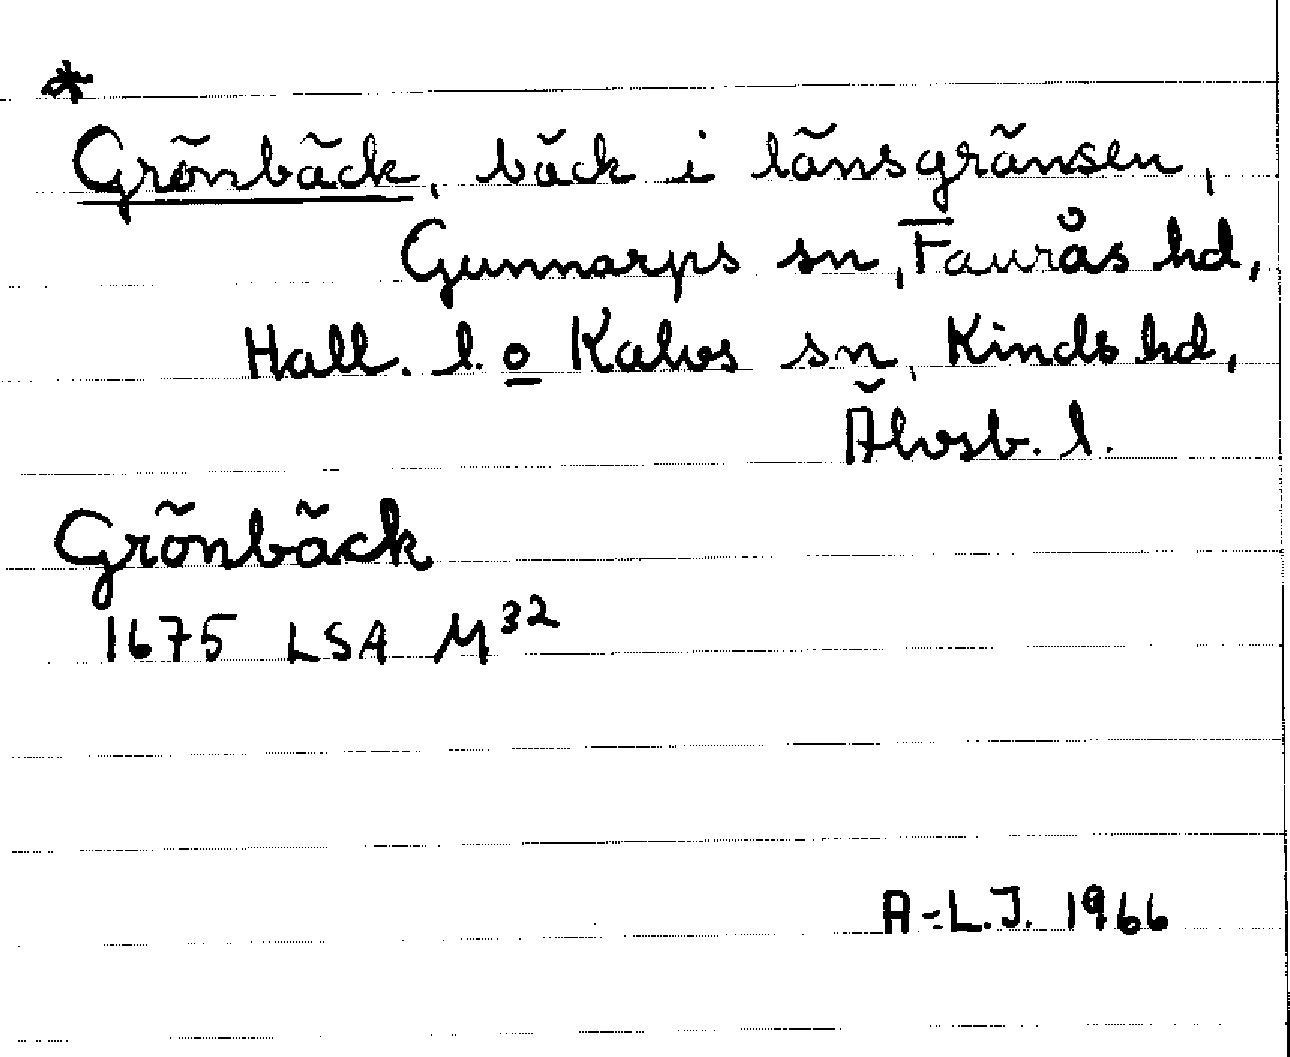 *
Grönbäck, bäck i länsgränsen,
Gunnarps sn, Faurås hd,
Hall. l. o Kalvs sn, Kinds hd,
Älvsb. l.
Grönbäck
1675 LSA M³²
A-L.J. 1966